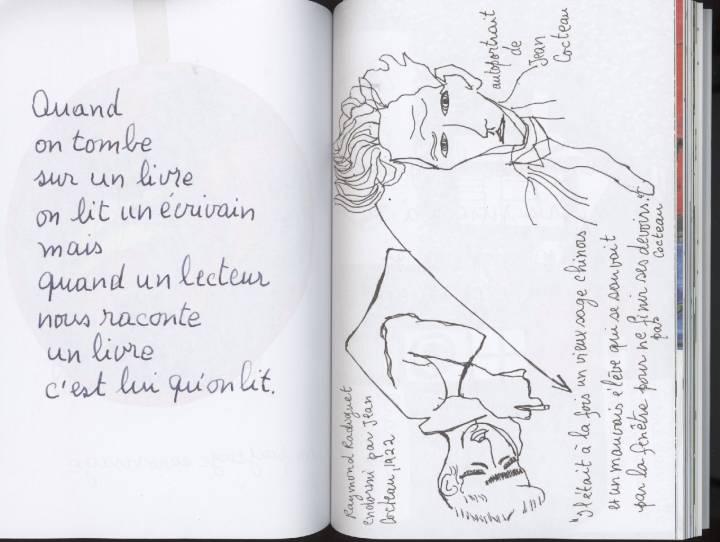 Quand
on tombe
sur un livre
on lit un écrivain
mais
quand un lecteur
nous raconte
un livre
c'est lui qu'on lit.
autoportrait
de
Jean
Cocteau
Raymond Radiguet
endormi par Jean
Cocteau, 1922
"Il était à la fois un vieux sage chinois
et un mauvais élève qui se sauvait
par la fenêtre pour ne finir ses devoirs."
pas
Cocteau